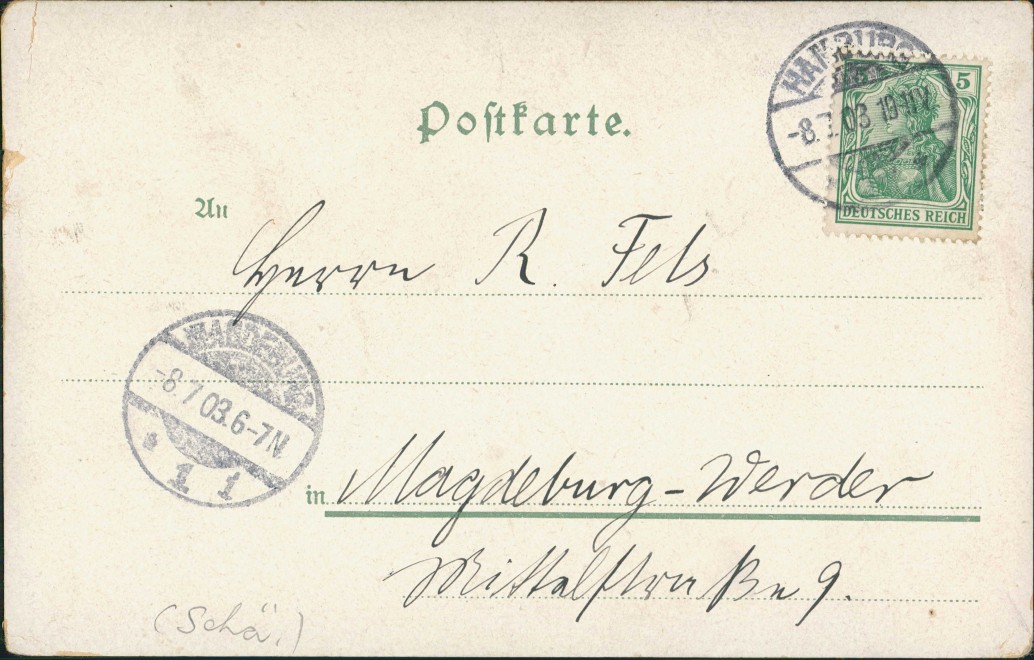 Postkarte.
HAMBURG
-8.7.03
5
DEUTSCHES REICH
An
Herrn R. Fels
MAGDEBURG
-8.7.03.6-7N
* 1 1
in Magdeburg-Werder
Mittelstraße 9.
(Schä.)